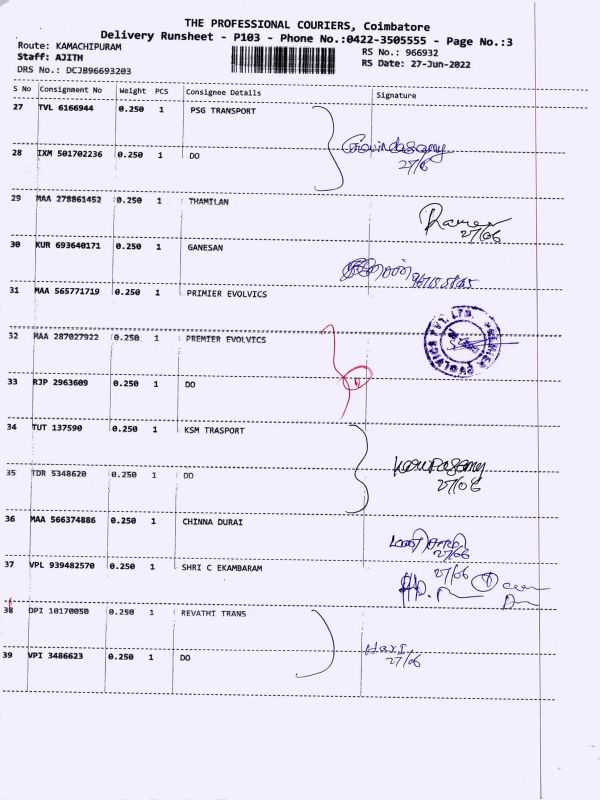 THE PROFESSIONAL COURIERS, Coimbatore
Delivery Runsheet - P103 - Phone No.:0422-3505555 - Page No.:3
Route: KAMACHIPURAM
RS No.: 966932
Staff: AJITH
RS Date: 27-Jun-2022
DRS No.: DCJB96693203
S No Consignment No Weight PCS Consignee Details Signature
27 TVL 6166944 0.250 1 PSG TRANSPORT
Govindasamy
27/6
28 IXM 501702236 0.250 1 DO
29 MAA 278861452 0.250 1 THAMILAN
27/06
30 KUR 693640171 0.250 1 GANESAN
31 MAA 565771719 0.250 1 PRIMIER EVOLVICS
PREMIER EVOLVICS PVT. LTD.
32 MAA 287027922 0.250 1 PREMIER EVOLVICS
33 RJP 2963609 0.250 1 DO
34 TUT 137590 0.250 1 KSM TRASPORT
27/06
35 TDR 5348620 0.250 1 DO
36 MAA 566374886 0.250 1 CHINNA DURAI
27/06
37 VPL 939482570 0.250 1 SHRI C EKAMBARAM
27/06
38 DPI 10170050 0.250 1 REVATHI TRANS
Hari
27/06
39 VPI 3486623 0.250 1 DO